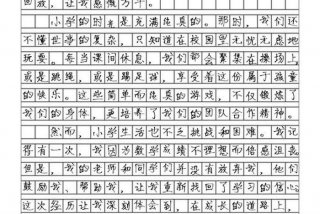 回放，让我感慨万千。
小学的时光是充满纯真的。那时，我们还
不懂世事的复杂，只知道在校园里无忧无虑地
玩耍。每当课间休息，我们都会聚集在操场上，
或是跳绳，或是踢足球，享受着这份属于孩童
的快乐。这些简单而纯真的游戏，不仅锻炼了
我们的身体，更培养了我们的团队合作精神。
然而，小学生活也不乏挑战和困难。我记
得有一次，我因为数学成绩不理想而倍感沮丧
但是，我的老师和同学们并没有放弃我，他们
鼓励我、帮助我，让我重新找回了学习的信心
这次经历让我深刻体会到，在成长的道路上，